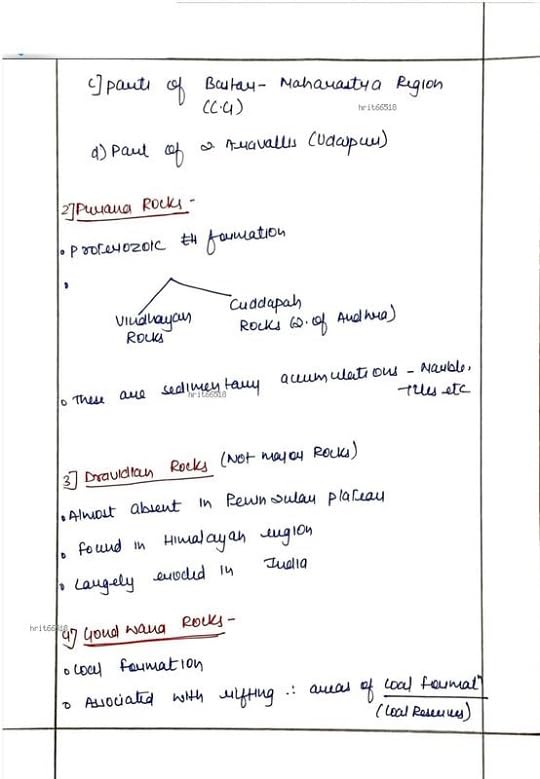 c] parts of Bastar- Maharastra Region
(C.G)
hrit66518
d) Part of Aravallis (Udaipur)
2] Purana Rocks -
• Proterozoic formation
•
Vindhayan
Rocks
Cuddapah
Rocks (D. of Andhra)
• These are sedimentary accumulations - Marble,
Tiles etc
hrit66518
3] Dravidian Rocks (Not major Rocks)
• Almost absent in Peninsular plateau
• Found in Himalayan region
• Largely eroded in India
hrit66518
4] Gondwana Rocks -
• Coal formation
• Associated with rifting ∴ areas of coal formatⁿ
(Coal Reserves)